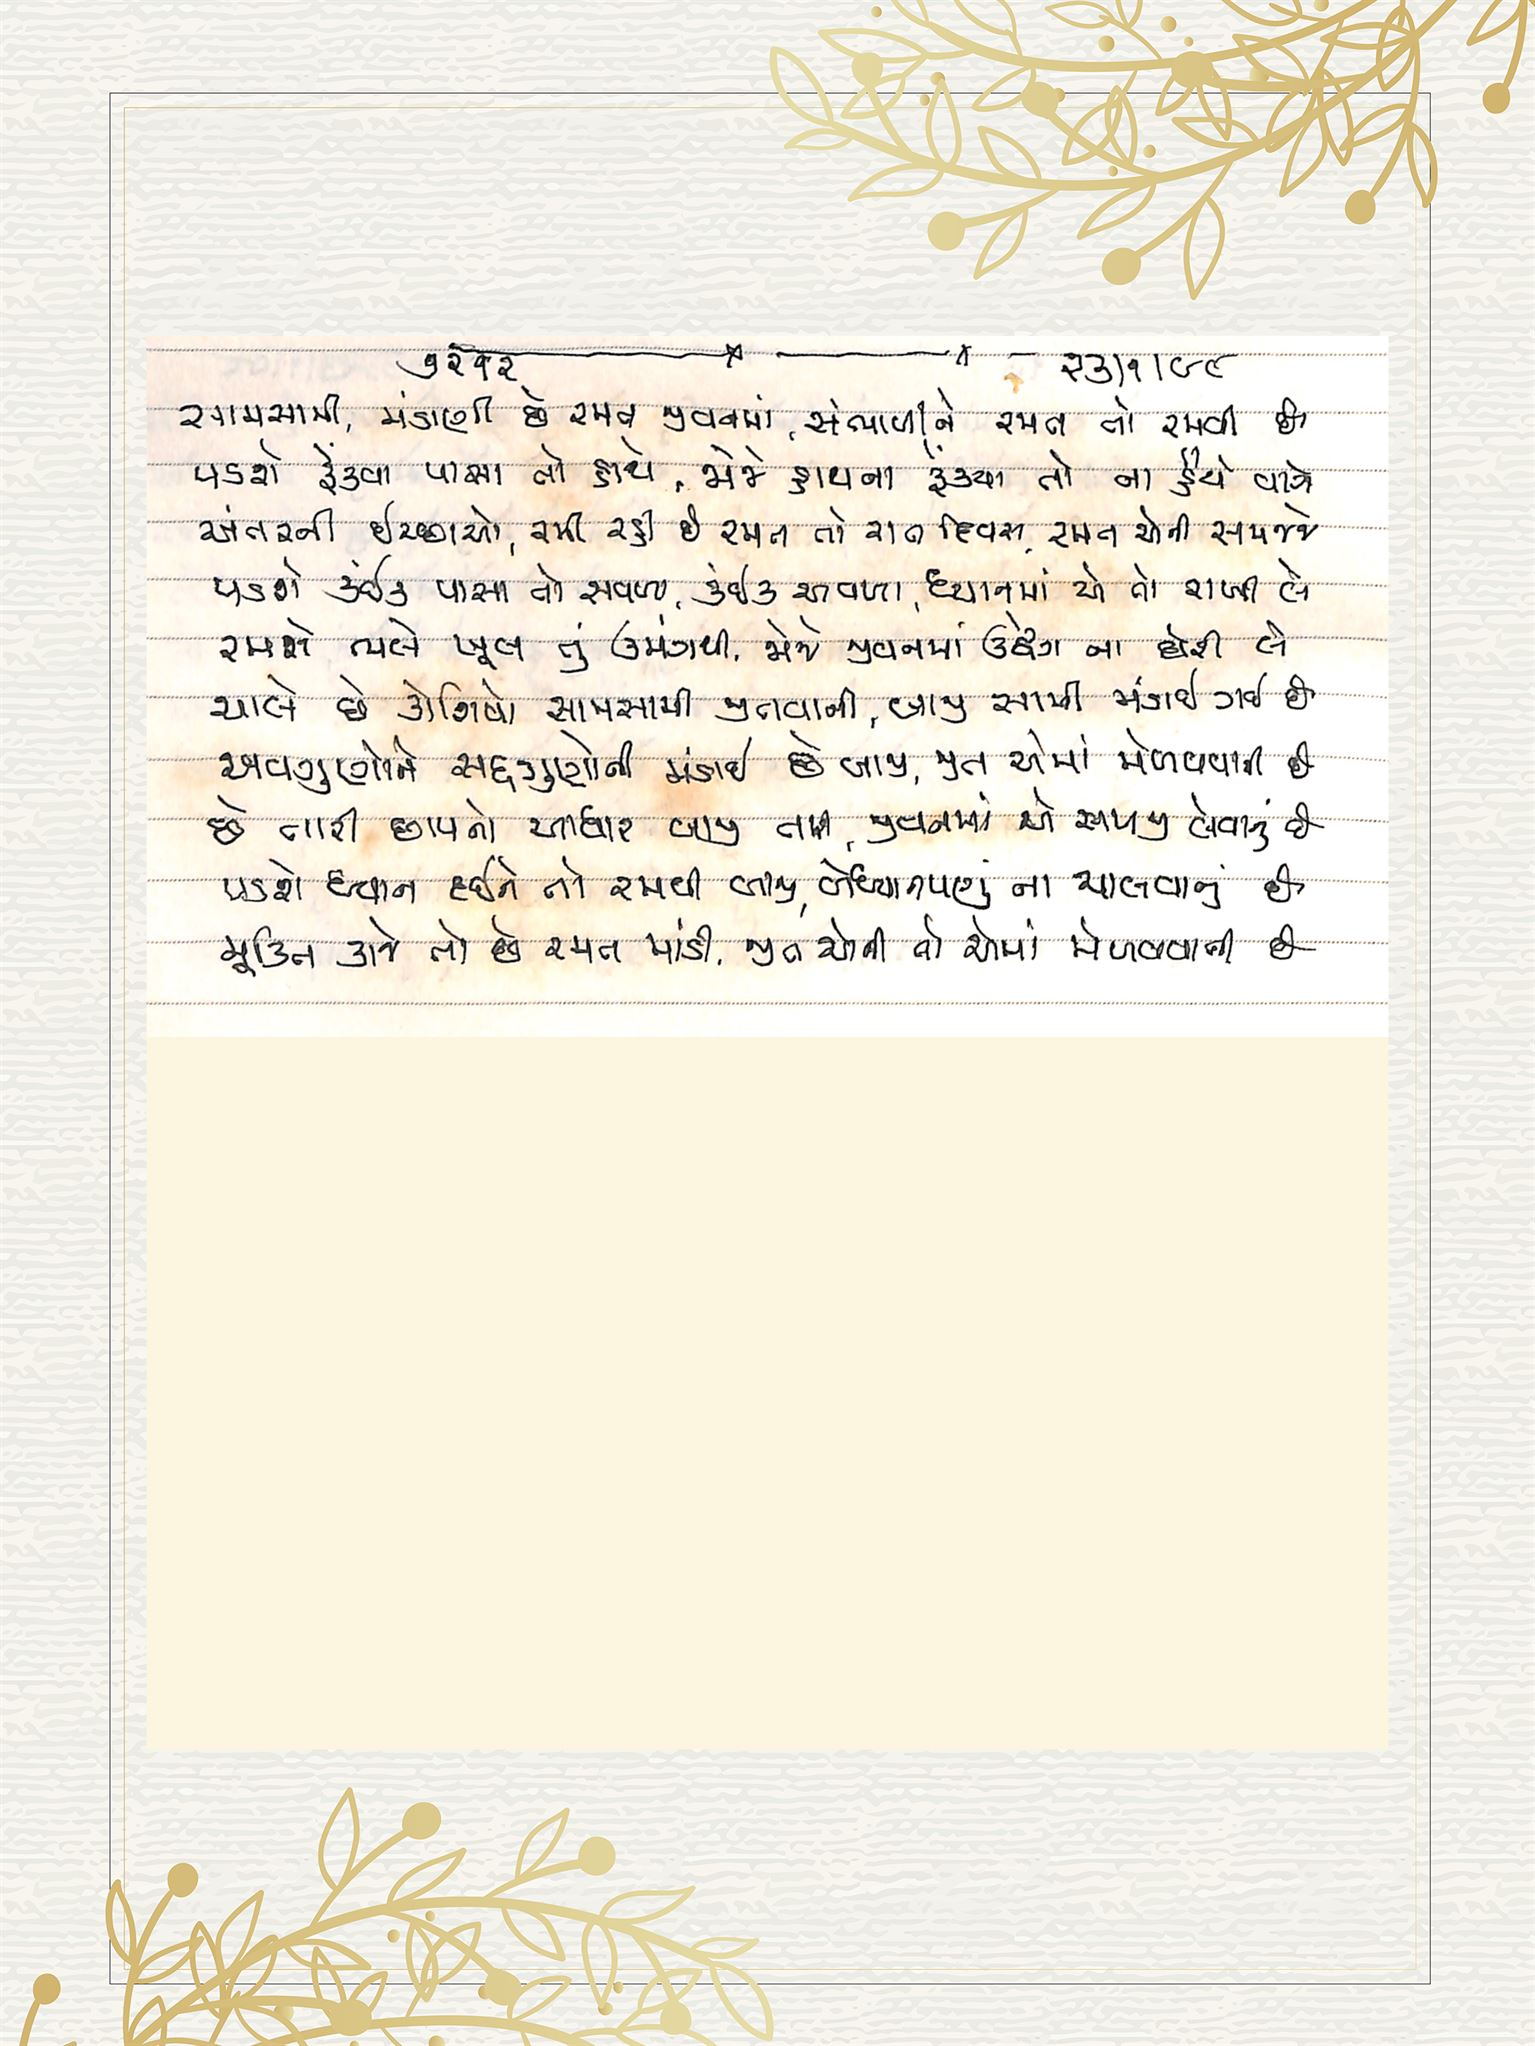 ૭૨૧૨ ૨૩/૧/૯૯
સામસામી, મંડાણી છે રમત જીવનમાં, સંભાળીને રમત તો રમવી છે
પડશે ફેંકવા પાસા તો હાથે, જોજે હાથના ફેંક્યા તો ના હૈયે વાગે
અંતરની ઇચ્છાઓ, રમી રહી છે રમત તો રાત દિવસ, રમત એની સમજજે
પડશે કંઈક પાસા તો સવળા, કંઈક અવળા, ધ્યાનમાં એ તો રાખી લે
રમશે ભલે ખેલ તું ઉમંગથી, જોજે જીવનમાં ઉદ્વેગ ના હોરી લે
ચાલે છે કોશિશો સામસામી જીતવાની, બાજી સામી મંડાઈ ગઈ છે
અવગુણોને સદ્દગુણોની મંડાઈ છે બાજી, જીત એમાં મેળવવાની છે
છે તારી છાપનો આધાર બાજી તારી, જીવનમાં એ સમજી લેવાનું છે
પડશે ધ્યાન દઈને તો રમવી બાજી, બેધ્યાનપણું ના ચાલવાનું છે
મૂક્તિ કાજે તો છે રમત માંડી, જીત એની તો એમાં મેળવવાની છે